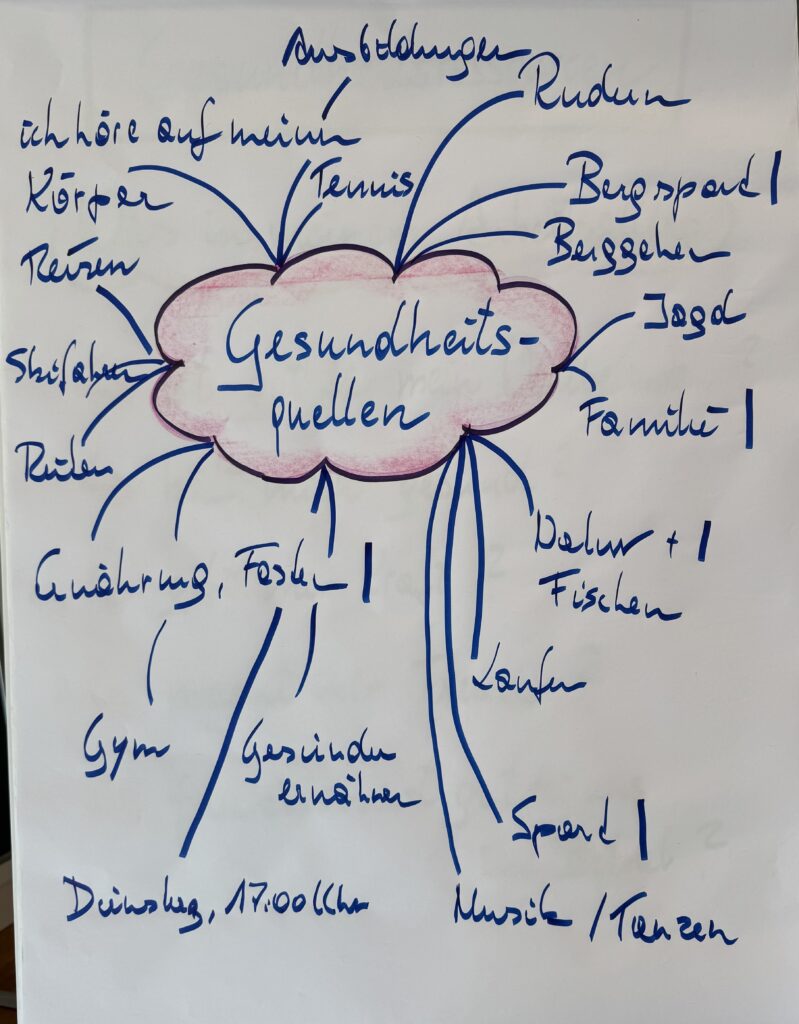 Ausbildungen
Rudern
ich höre auf meinen
Körper
Tennis
Bergsport |
Berggehen
Reisen
Jagd
Gesundheits-
quellen
Skifahren
Familie |
Reiten
Natur + |
Fischen
Ernährung, Fasten |
Laufen
Gym
Gesünder
ernähren
Sport |
Dienstag, 17.00 Uhr
Musik / Tanzen